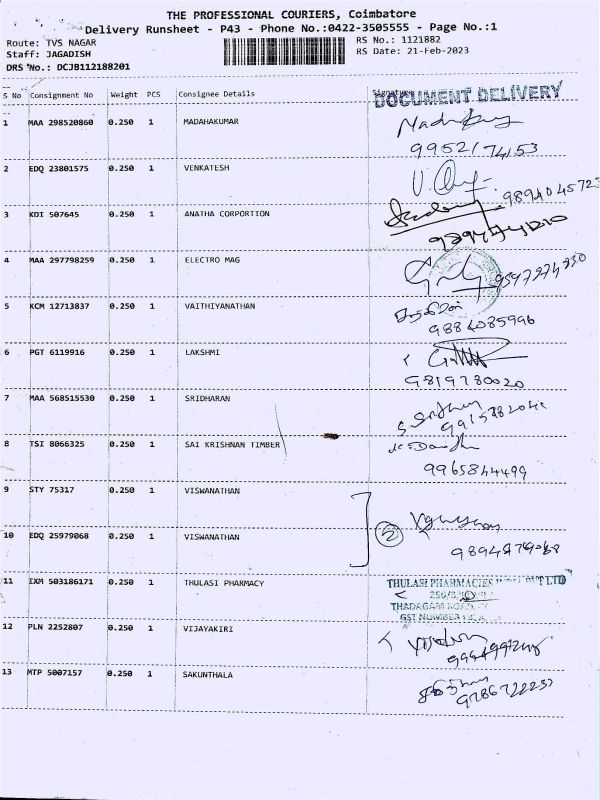 THE PROFESSIONAL COURIERS, Coimbatore
Delivery Runsheet - P43 - Phone No.:0422-3505555 - Page No.:1
Route: TVS NAGAR
RS No.: 1121882
Staff: JAGADISH
RS Date: 21-Feb-2023
DRS No.: DCJB112188201
S No Consignment No Weight PCS Consignee Details Signature
DOCUMENT DELIVERY
1 MAA 298520860 0.250 1 MADAHAKUMAR
9952174153
2 EDQ 23801575 0.250 1 VENKATESH
9894045723
3 KDI 507645 0.250 1 ANATHA CORPORTION
4 MAA 297798259 0.250 1 ELECTRO MAG
5 KCM 12713837 0.250 1 VAITHIYANATHAN
9884085996
6 PGT 6119916 0.250 1 LAKSHMI
9819780020
7 MAA 568515530 0.250 1 SRIDHARAN
8 TSI 8066325 0.250 1 SAI KRISHNAN TIMBER
9965844499
9 STY 75317 0.250 1 VISWANATHAN
10 EDQ 25979068 0.250 1 VISWANATHAN
2
11 IXM 503186171 0.250 1 THULASI PHARMACY
THULASI PHARMACIES PVT LTD
THADAGAM ROAD
GST NUMBER
12 PLN 2252807 0.250 1 VIJAYAKIRI
13 MTP 5007157 0.250 1 SAKUNTHALA
9786722237